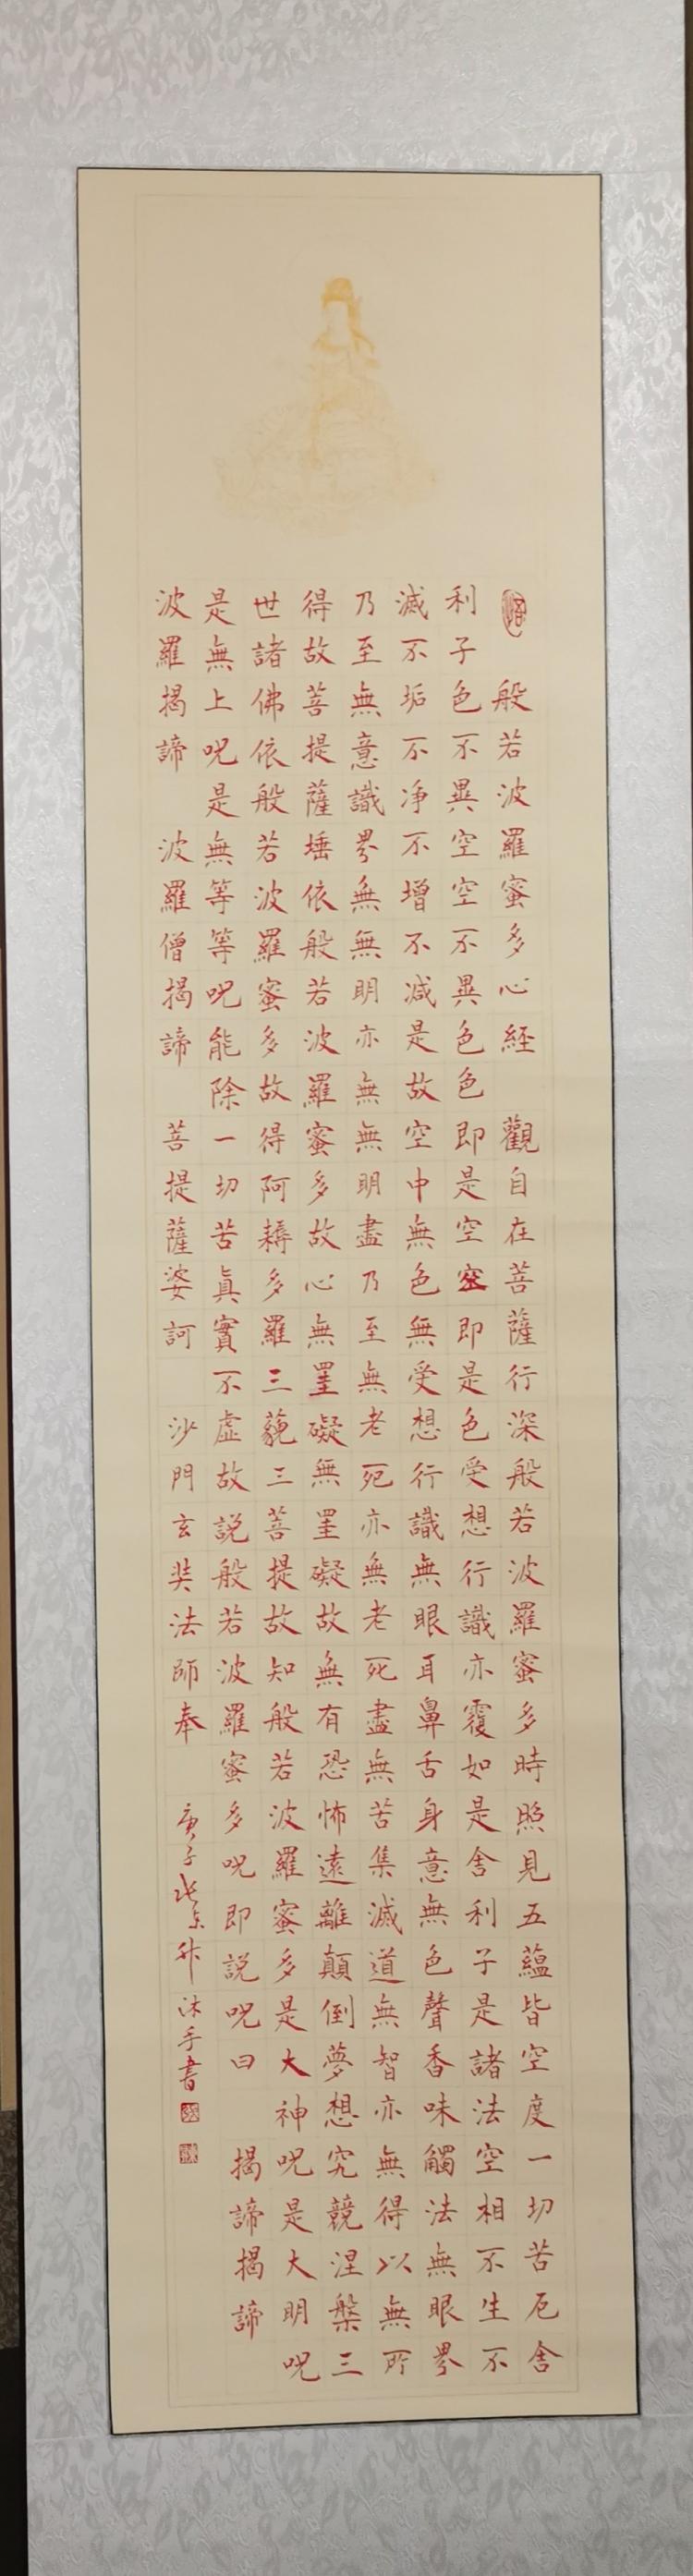 般若波羅蜜多心経 觀自在菩薩行深般若波羅蜜多時照見五蘊皆空度一切苦厄舍
利子色不異空空不異色色即是空空即是色受想行識亦覆如是舍利子是諸法空相不生不
滅不垢不净不增不減是故空中無色無受想行識無眼耳鼻舌身意無色聲香味觸法無眼界
乃至無意識界無無明亦無無明盡乃至無老死亦無老死盡無苦集滅道無智亦無得以無所
得故菩提薩埵依般若波羅蜜多故心無罣礙無罣礙故無有恐怖遠離顛倒夢想究競涅槃三
世諸佛依般若波羅蜜多故得阿耨多羅三藐三菩提故知般若波羅蜜多是大神呪是大明呪
是無上呪是無等等呪能除一切苦真實不虛故説般若波羅蜜多呪即説呪曰 揭諦揭諦
波羅揭諦 波羅僧揭諦 菩提薩婆訶 沙門玄奘法師奉 庚子 沐手書